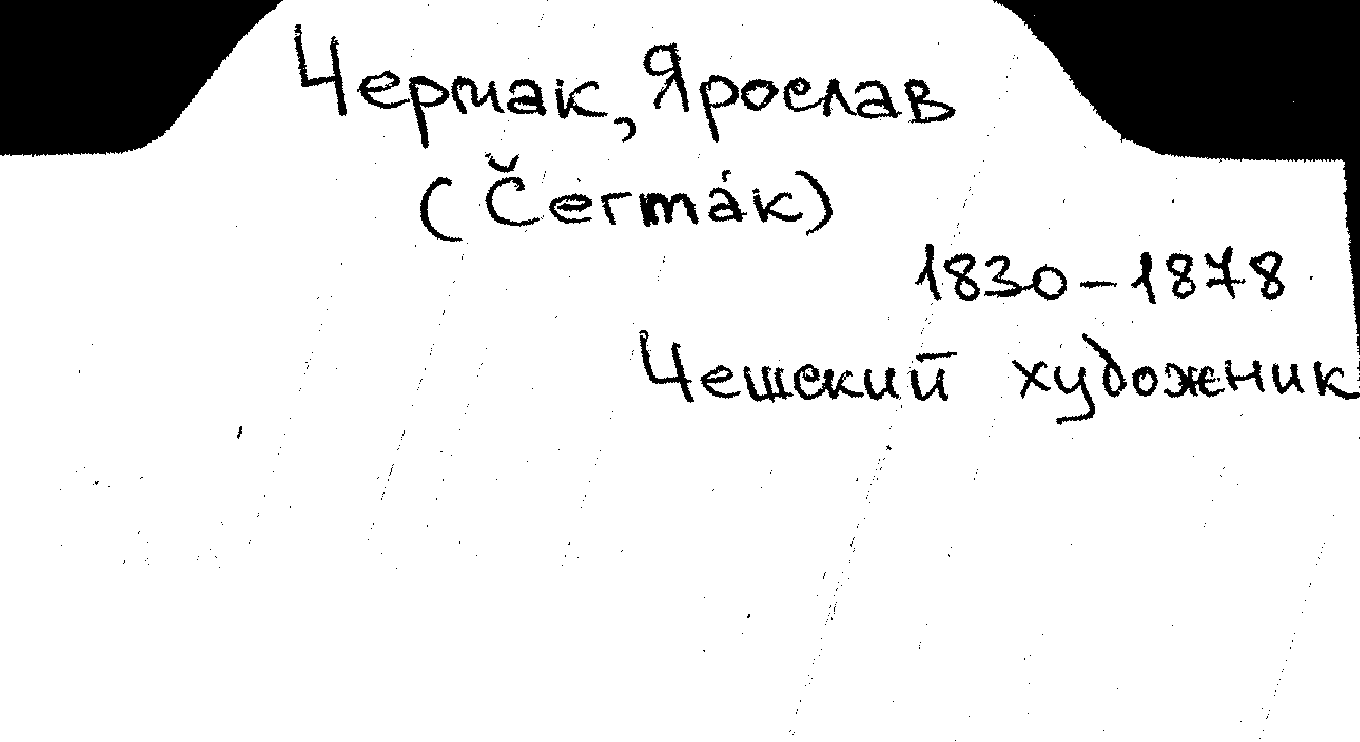 Чермак, Ярослав
(Čermák)
1830–1878
Чешский художник